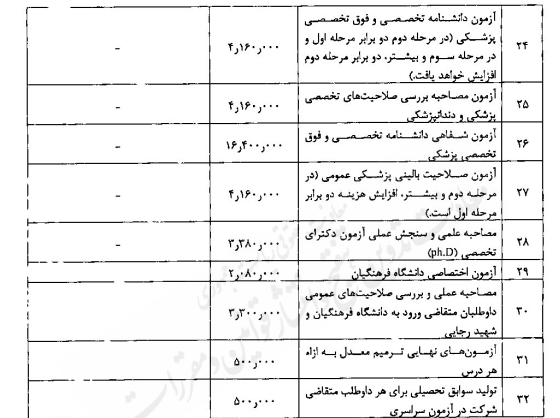 آزمون دانشنامه تخصصی و فوق تخصصی
پزشکی (در مرحله دوم دو برابر مرحله اول و
۲۴
۴٫۱۶۰٫۰۰۰
-
در مرحله سوم و بیشتر، دو برابر مرحله دوم
افزایش خواهد یافت.)
۲۵
آزمون مصاحبه بررسی صلاحیت‌های تخصصی
۴٫۱۶۰٫۰۰۰
-
پزشکی و دندانپزشکی
۲۶
آزمون شفاهی دانشنامه تخصصی و فوق
۱۶٫۴۰۰٫۰۰۰
-
تخصصی پزشکی
آزمون صلاحیت بالینی پزشکی عمومی (در
۲۷
مرحله دوم و بیشتر، افزایش هزینه دو برابر
۴٫۱۶۰٫۰۰۰
-
مرحله اول است.)
۲۸
مصاحبه علمی و سنجش عملی آزمون دکترای
۳٫۳۸۰٫۰۰۰
-
تخصصی (ph.D)
۲۹
آزمون اختصاصی دانشگاه فرهنگیان
۲٫۰۸۰٫۰۰۰
مصاحبه عملی و بررسی صلاحیت‌های عمومی
۳۰
داوطلبان متقاضی ورود به دانشگاه فرهنگیان و
۳٫۳۰۰٫۰۰۰
شهید رجایی
۳۱
آزمون‌های نهایی ترمیم معدل به ازاء
۵۰۰٫۰۰۰
هر درس
۳۲
تولید سوابق تحصیلی برای هر داوطلب متقاضی
۵۰۰٫۰۰۰
شرکت در آزمون سراسری